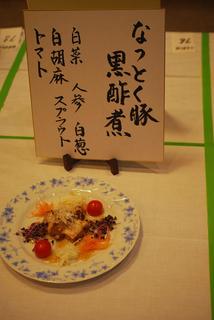 なっとく豚
黒酢煮
白菜 人参 白葱
白胡麻 スプラウト
トマト